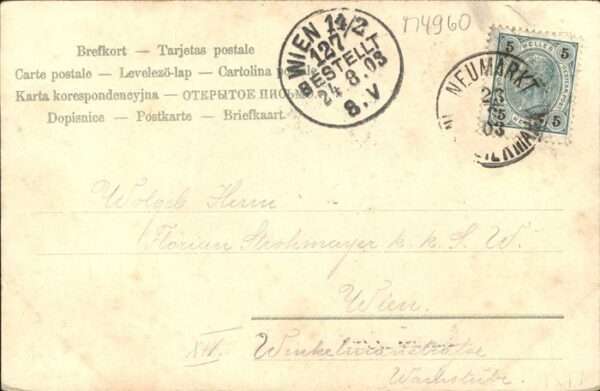 Brefkort — Tarjetas postale
Carte postale — Levelező-lap — Cartolina postale
Karta korespondencyjna — ОТКРЫТОЕ ПИСЬМО
Dopisnice — Postkarte — Briefkaart
WIEN 14/2
127
BESTELLT
24.8.03
8.V
П4960
5 HELLER 5
5 5
NEUMARKT
23
03
STEIERMARK
Wolgeb Herrn
Florian Strohmayer k. k. S. W.
Wien.
XIV. Winkelmannstrasse
Wachstube.